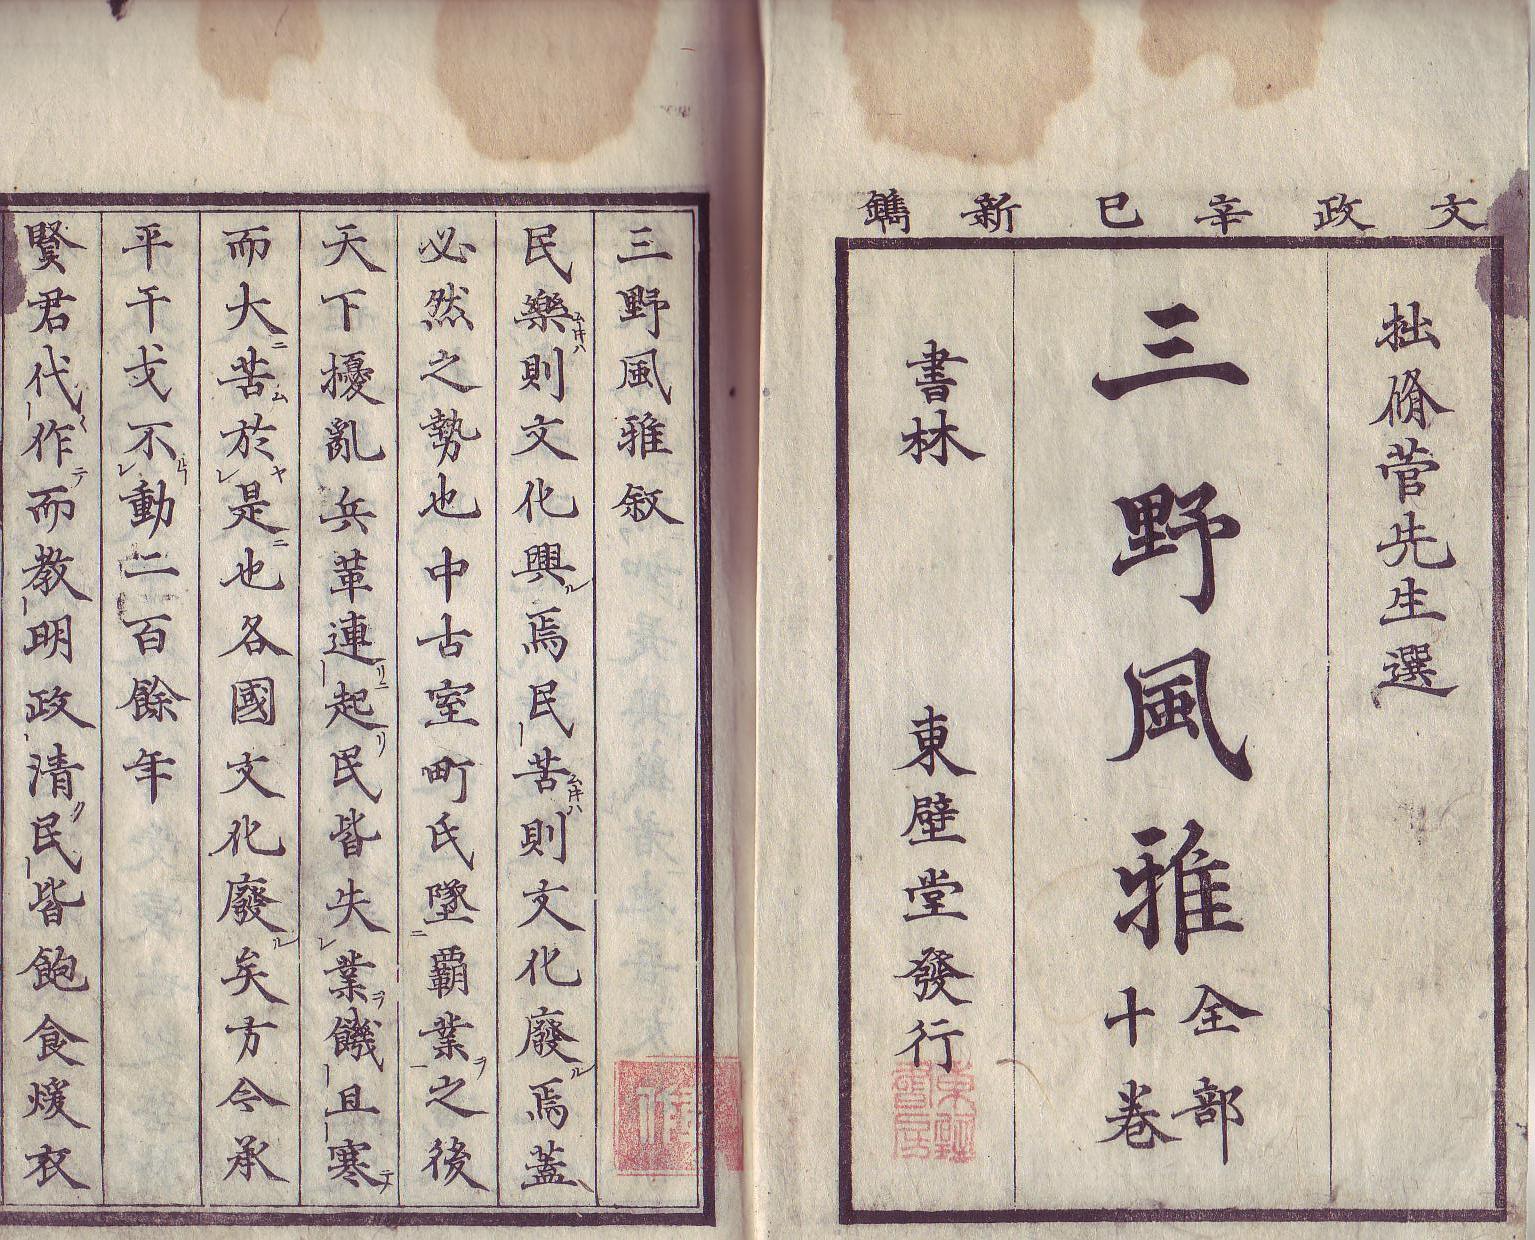 文政辛巳新鐫
拙脩菅先生選
三野風雅全部十卷
書林 東壁堂發行
三野風雅敘
民樂則文化興焉民苦則文化廢焉蓋
必然之勢也中古室町氏墜覇業之後
天下擾亂兵革連起民皆失業饑且寒
而大苦於是也各國文化廢矣方今承
平干戈不動二百餘年
賢君代作而教明政清民皆飽食煖衣